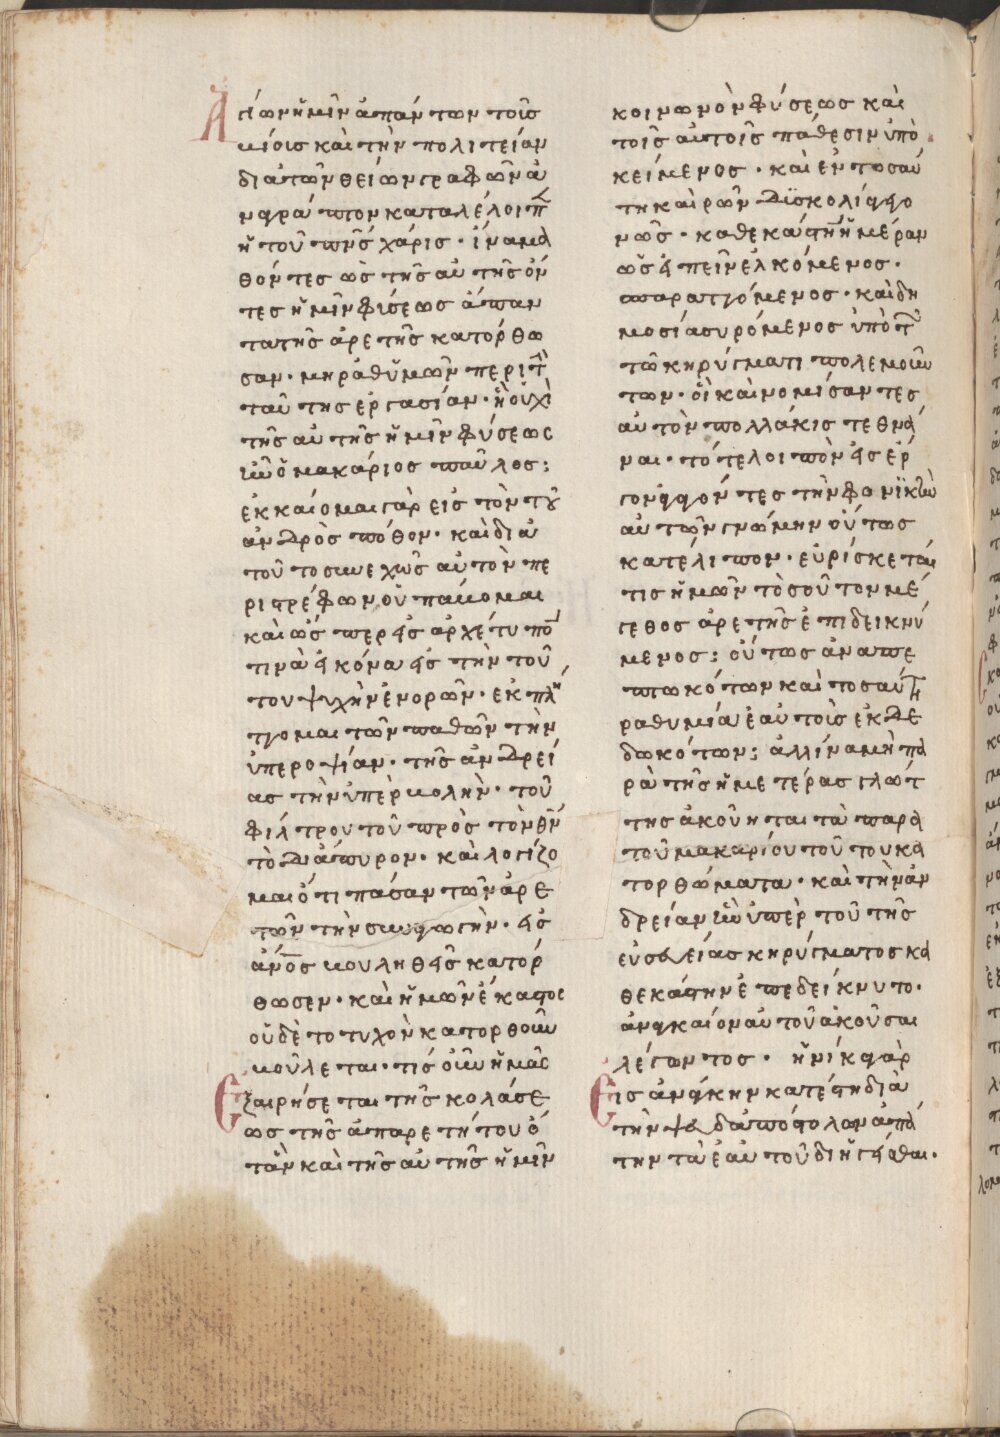 Ἁγίων ἡμῖν ἁπάντων τοῖς
βίοις καὶ τὴν πολιτείαν
διὰ τῶν θείων γραφῶν ἀ
νάγραπτον καταλέλοιπ
ἡ τοῦ πνς χάρις · ἵνα μα
θόντες ὡς τῆς αὐτῆς ὄν
τες ἡμῖν φύσεως ἅπαν
τα τῆς ἀρετῆς κατόρθω
σαν · μὴ ῥαθυμῶμεν περὶ τ
ταύτης ἐργασίαν · ἢ οὐχὶ
τῆς αὐτῆς ἡμῖν φύσεως
ἦν ὁ μακάριος παῦλος ;
ἐκκαίομαι γὰρ εἰς τὸν τοῦ
ἀνδρὸς πόθον · καὶ διὰ
τοῦτο συνεχῶς αὐτὸν πε
ριστρέφων οὐ παύομαι
καὶ ὥσπερ εἰς ἀρχέτυπον
τινὰ εἰκόνα εἰς τὴν τού
του ψυχὴν ἐνορῶν · ἐκπλή
ττομαι τῶν παθῶν τὴν
ὑπεροψίαν · τῆς ἀνδρεί
ας τὴν ὑπερβολὴν · τοῦ
φίλτρου τοῦ πρὸς τὸν θν
τὸ διάπυρον · καὶ λογίζο
μαι ὅτι πάσαν τῶν ἀρε
τῶν τὴν συναγωγὴν · εἷς
ἄνος βουληθεὶς κατόρ
θωσεν · καὶ ἡμῶν ἕκαστος
οὐδὲ τὸ τυχὸν κατορθοῦν
βούλεται · τίς οὖν ἡμᾶς
ἐξαιρήσεται τῆς κολάσε
ως τῆς ἀπαρετήτου ὅ
τὰν καὶ τῆς αὐτῆς ἡμῖν
κοινωνὸν φύσεως καὶ
τοῖς αὐτοῖς πάθεσιν ὑπο
κείμενος · καὶ ἐν τοσαύ
τη καιρῶν δυσκολία γεγο
νὼς · καθεκάστην ἡμέραν
ὡς εἰπεῖν ἑλκόμενος ·
σπαραττόμενος · καὶ δη
μοσία συρόμενος ὑπὸ τ
τῶ κηρύγματι πολεμούν
των · οἳ καὶ νομίσαντες
αὐτὸν πολλάκις τεθνά
ναι · τότε λοιπὸν εἰς ἔρ
γον ἀγαγόντες τὴν φονικὴν
αὐτῶν γνώμην οὕτως
κατέλιπον · εὑρίσκεταί
τις ἡμῶν τὸ σοῦτον μέ
γεθος ἀρετῆς ἐπιδεικνύ
μενος ; οὕτως ἀναπε
πτωκότων καὶ τοσαύτη
ραθυμία ἑαυτοὺς ἐκδε
δωκότων ; ἀλλ ἵνα μὴ πα
ρὰ τῆς ἡμετέρας γλώτ
της ἀκούηται τὰ παρὰ
τοῦ μακαρίου τούτου κα
τορθώματα · καὶ τὴν ἀν
δρείαν ἣν ὑπὲρ τοῦ τῆς
εὐσεβείας κηρύγματος κα
θεκάστην ἐπεδείκνυτο ·
ἀναγκαῖον αὐτοῦ ἀκοῦσαι
λέγοντος · ἡνίκα γὰρ
Εἰς ἀνάγκην κατέστη διὰ
τὴν ψευδαποστόλων ἀπά
την τὰ ἑαυτοῦ διηγεῖσθαι ·